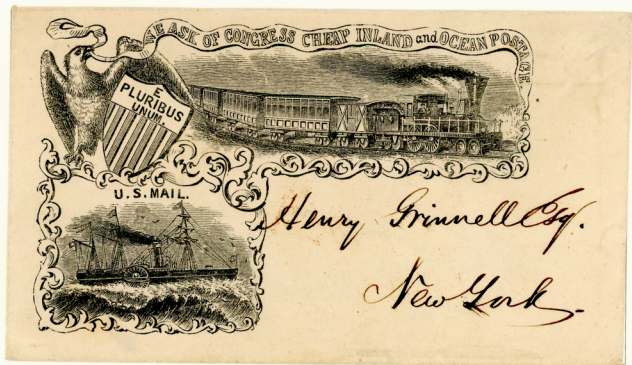 WE ASK OF CONGRESS CHEAP INLAND and OCEAN POSTAGE.
E
PLURIBUS
UNUM.
U.S. MAIL.
Henry Grinnell Esq.
New York.